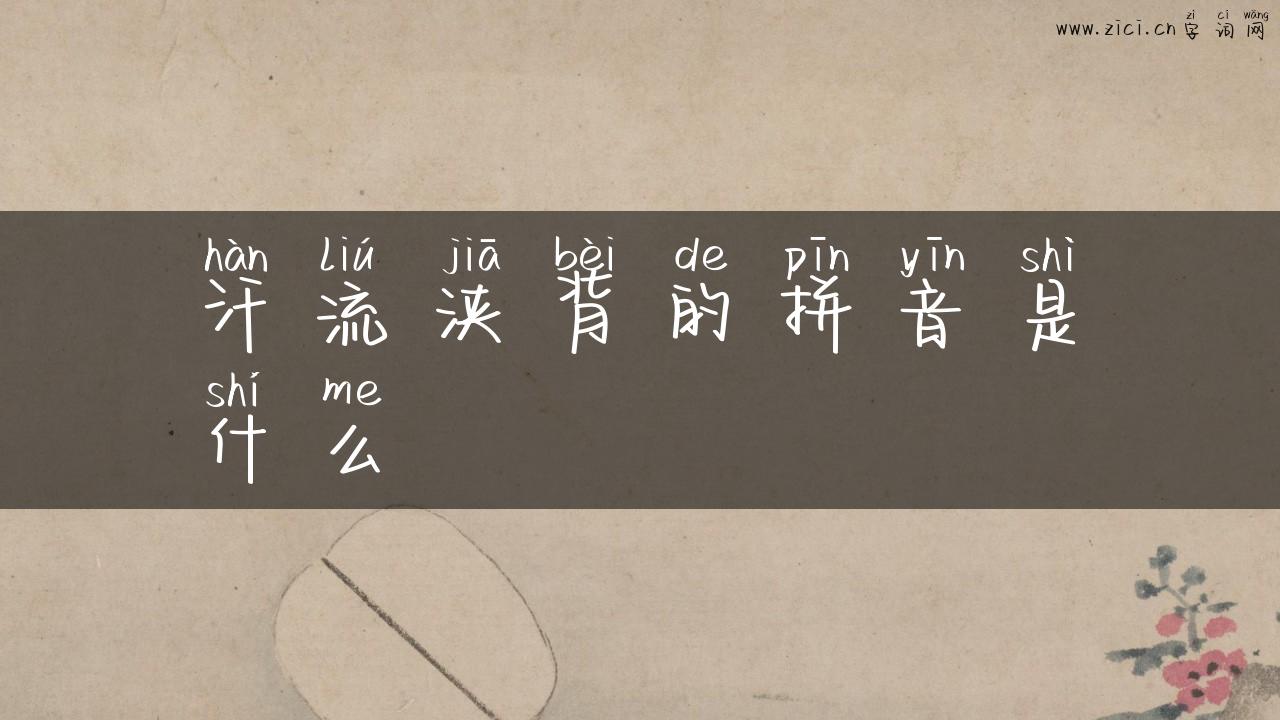 zì cí wǎng
www.zici.cn 字词网
hàn liú jiā bèi de pīn yīn shì
汗流浃背的拼音是
shí me
什么